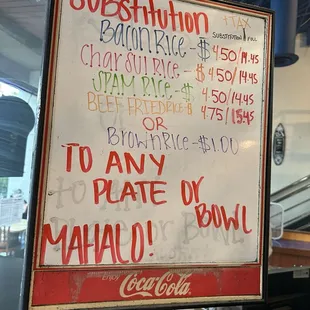 SUBSTITUTION
+TAX
BACON RICE - $ 4.50/14.45
CHAR SUI RICE - $ 4.50/14.45
SPAM RICE - $ 4.50/14.45
BEEF FRIED RICE $ 4.75/15.45
OR
BROWN RICE - $1.00
TO ANY
PLATE OR
BOWL
MAHALO!
ENJOY
Coca-Cola